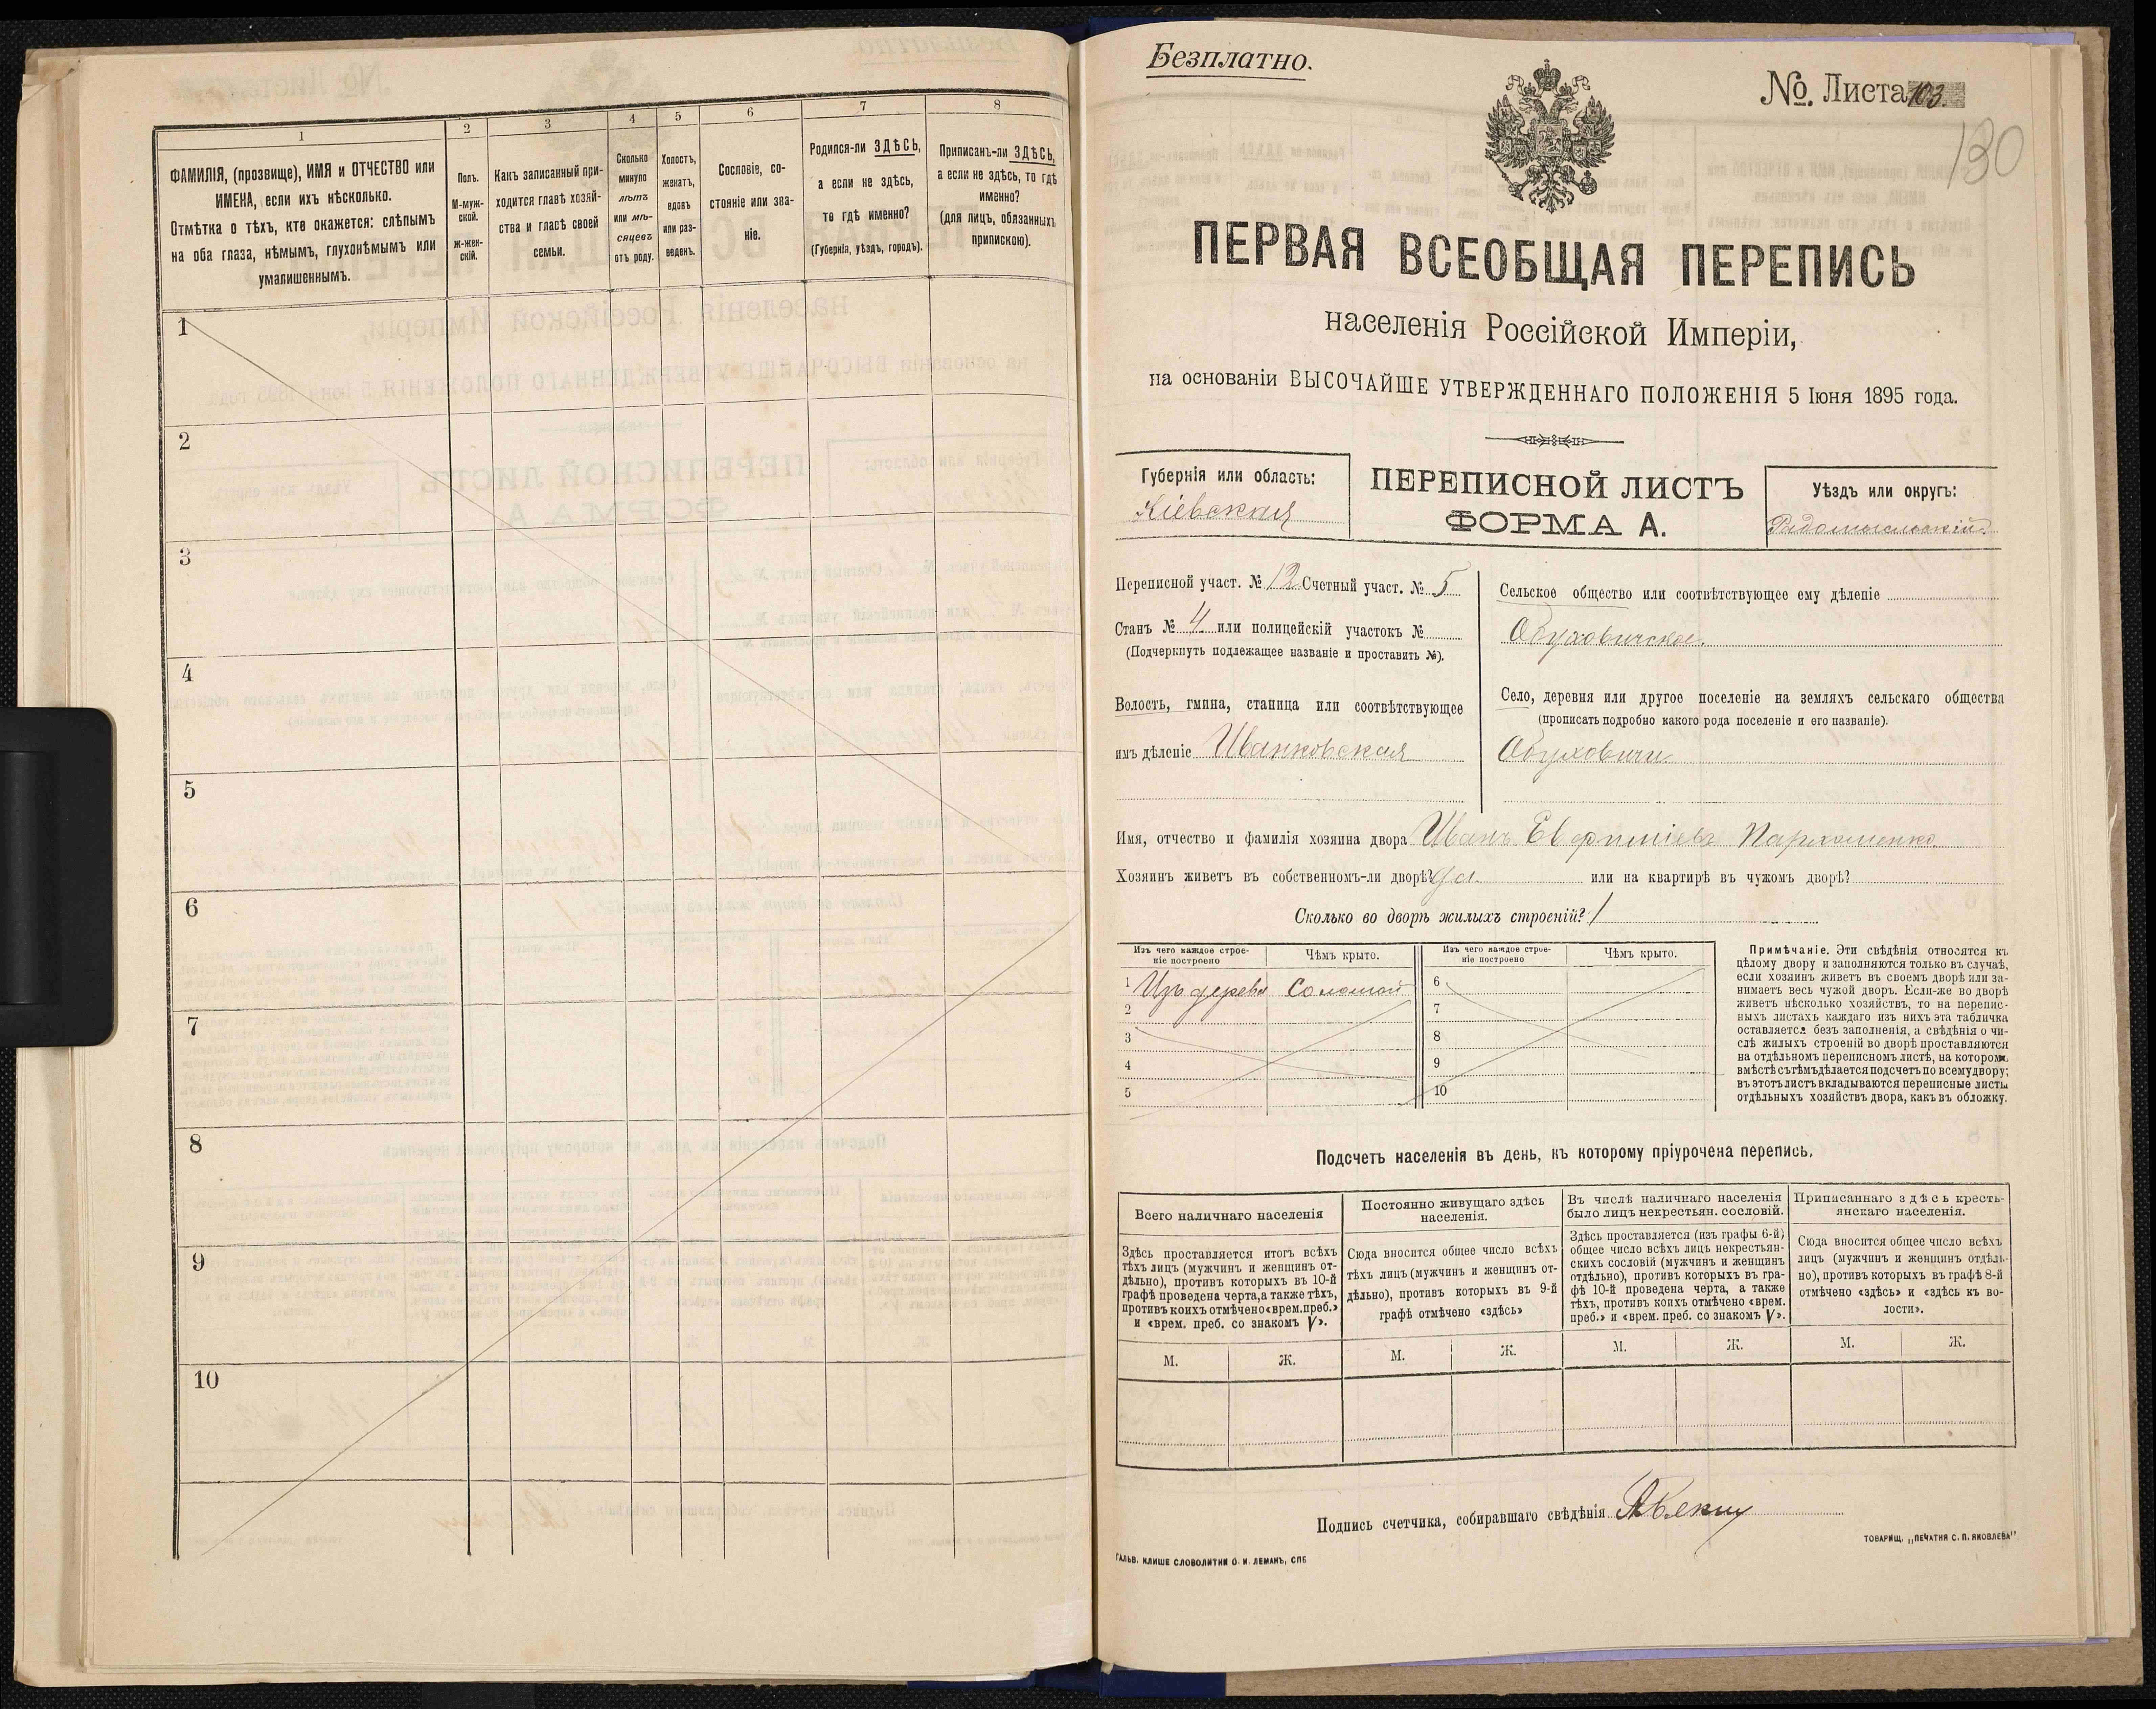 1
2
3
4
5
6
7
8
ФАМИЛІЯ, (прозвище), ИМЯ и ОТЧЕСТВО или
ИМЕНА, если ихъ нѣсколько.
Отмѣтка о тѣхъ, кто окажется: слѣпымъ
на оба глаза, нѣмымъ, глухонѣмымъ или
умалишеннымъ.
Полъ.
М-муж-
ской.
Ж-жен-
скій.
Какъ записанный при-
ходится главѣ хозяй-
ства и главѣ своей
семьи.
Сколько
минуло
лѣтъ
или мѣ-
сяцевъ
отъ роду.
Холостъ,
женатъ,
вдовъ
или раз-
веденъ.
Сословіе, со-
стояніе или зва-
ніе.
Родился-ли ЗДѢСЬ,
а если не здѣсь,
то гдѣ именно?
(Губернія, уѣздъ, городъ).
Приписанъ-ли ЗДѢСЬ,
а если не здѣсь, то гдѣ
именно?
(для лицъ, обязанныхъ
припискою).
1
2
3
4
5
6
7
8
9
10
Безплатно.
№. Листа 103.
130
ПЕРВАЯ ВСЕОБЩАЯ ПЕРЕПИСЬ
населенія Россійской Имперіи,
на основаніи ВЫСОЧАЙШЕ УТВЕРЖДЕННАГО ПОЛОЖЕНІЯ 5 Іюня 1895 года.
Губернія или область:
Кіевская
ПЕРЕПИСНОЙ ЛИСТЪ
ФОРМА А.
Уѣздъ или округъ:
Радомысльскій
Переписной участ. № 12 Счетный участ. № 5
Станъ № 4 или полицейскій участокъ №
(Подчеркнуть подлежащее названіе и проставить №).
Волость, гмина, станица или соотвѣтствующее
имъ дѣленіе Иванковская
Сельское общество или соотвѣтствующее ему дѣленіе
Обуховичское.
Село, деревня или другое поселеніе на земляхъ сельскаго общества
(прописать подробно какого рода поселеніе и его названіе).
Обуховичи
Имя, отчество и фамилія хозяина двора Иванъ Евфиміевъ Пархоменко
Хозяинъ живетъ въ собственномъ-ли дворѣ? да. или на квартирѣ въ чужомъ дворѣ?
Сколько во дворѣ жилыхъ строеній? 1
Изъ чего каждое строе-
ніе построено
Чѣмъ крыто.
Изъ чего каждое строе-
ніе построено
Чѣмъ крыто.
1 Изъ дерева Соломой
2
3
4
5
6
7
8
9
10
Примѣчаніе. Эти свѣдѣнія относятся къ
цѣлому двору и заполняются только въ случаѣ,
если хозяинъ живетъ въ своемъ дворѣ или за-
нимаетъ весь чужой дворъ. Если-же во дворѣ
живетъ нѣсколько хозяйствъ, то на перепис-
ныхъ листахъ каждаго изъ нихъ эта табличка
оставляется безъ заполненія, а свѣдѣнія о чи-
слѣ жилыхъ строеній во дворѣ проставляются
на отдѣльномъ переписномъ листѣ, на которомъ
вмѣстѣ съ тѣмъ дѣлается подсчетъ по всему двору;
въ этотъ листъ вкладываются переписные листы
отдѣльныхъ хозяйствъ двора, какъ въ обложку.
Подсчетъ населенія въ день, къ которому пріурочена перепись.
Всего наличнаго населенія
Здѣсь проставляется итогъ всѣхъ
тѣхъ лицъ (мужчинъ и женщинъ от-
дѣльно), противъ которыхъ въ 10-й
графѣ проведена черта, а также тѣхъ,
противъ коихъ отмѣчено «врем. преб.»
и «врем. преб. со знакомъ V».
Постоянно живущаго здѣсь
населенія.
Сюда вносится общее число всѣхъ
тѣхъ лицъ (мужчинъ и женщинъ от-
дѣльно), противъ которыхъ въ 9-й
графѣ отмѣчено «здѣсь»
Въ числѣ наличнаго населенія
было лицъ некрестьян. сословій.
Здѣсь проставляется (изъ графы 6-й)
общее число всѣхъ лицъ некрестьян-
скихъ сословій (мужчинъ и женщинъ
отдѣльно), противъ которыхъ въ гра-
фѣ 10-й проведена черта, а также
тѣхъ, противъ коихъ отмѣчено «врем.
преб.» и «врем. преб. со знакомъ V».
Приписаннаго здѣсь кресть-
янскаго населенія.
Сюда вносится общее число всѣхъ
лицъ (мужчинъ и женщинъ отдѣль-
но), противъ которыхъ въ графѣ 8-й
отмѣчено «здѣсь» и «здѣсь къ во-
лости».
М. Ж. М. Ж. М. Ж. М. Ж.
Подпись счетчика, собиравшаго свѣдѣнія
ГАЛЬВ. КЛИШЕ СЛОВОЛИТНИ О. И. ЛЕМАНЪ, СПБ
ТОВАРИЩ. „ПЕЧАТНЯ С. П. ЯКОВЛЕВА"